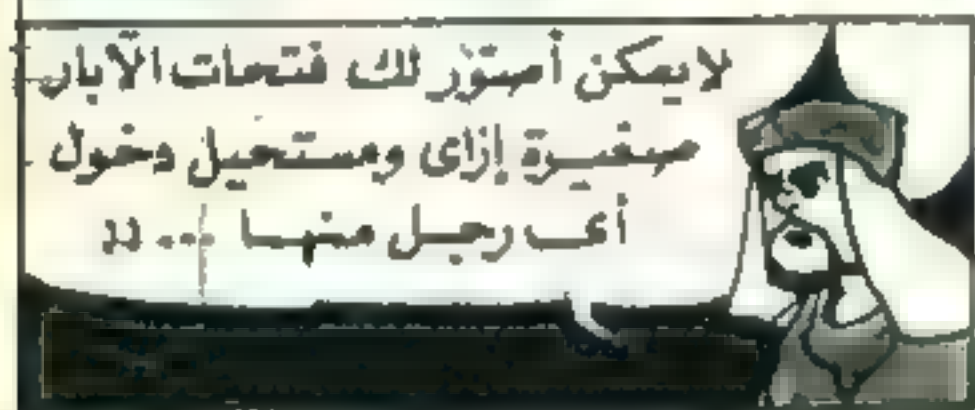 لايمكن أصتوّر لك فتحات الآبار
صغيرة إزاى ومستحيل دخول
أى رجل منها ... دد